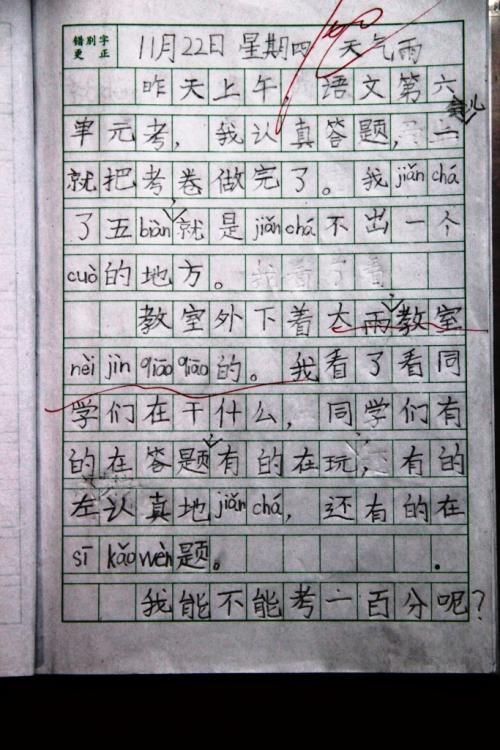 错别字
更正
11月22日 星期四 天气雨
昨天上午，语文第六
单元考，我认真答题，一会儿
就把考卷做完了。我jiǎn chá
了五biàn，就是jiǎn chá不出一个
cuò的地方。
教室外下着大雨，教室
nèi jìn qiāo qiāo的。我看了看同
学们在干什么，同学们有
的在答题，有的在玩，有的
在认真地jiǎn chá，还有的在
sī kǎo wèn题。
我能不能考一百分呢？